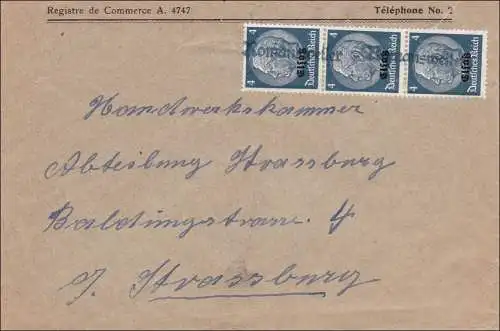 Registre de Commerce A. 4747 Téléphone No. 2
4 Deutsches Reich Elsaß 4 Deutsches Reich Elsaß 4 Deutsches Reich Elsaß
Handwerkskammer
Abteilung Strassburg
Baldungstrasse 4
Strassburg